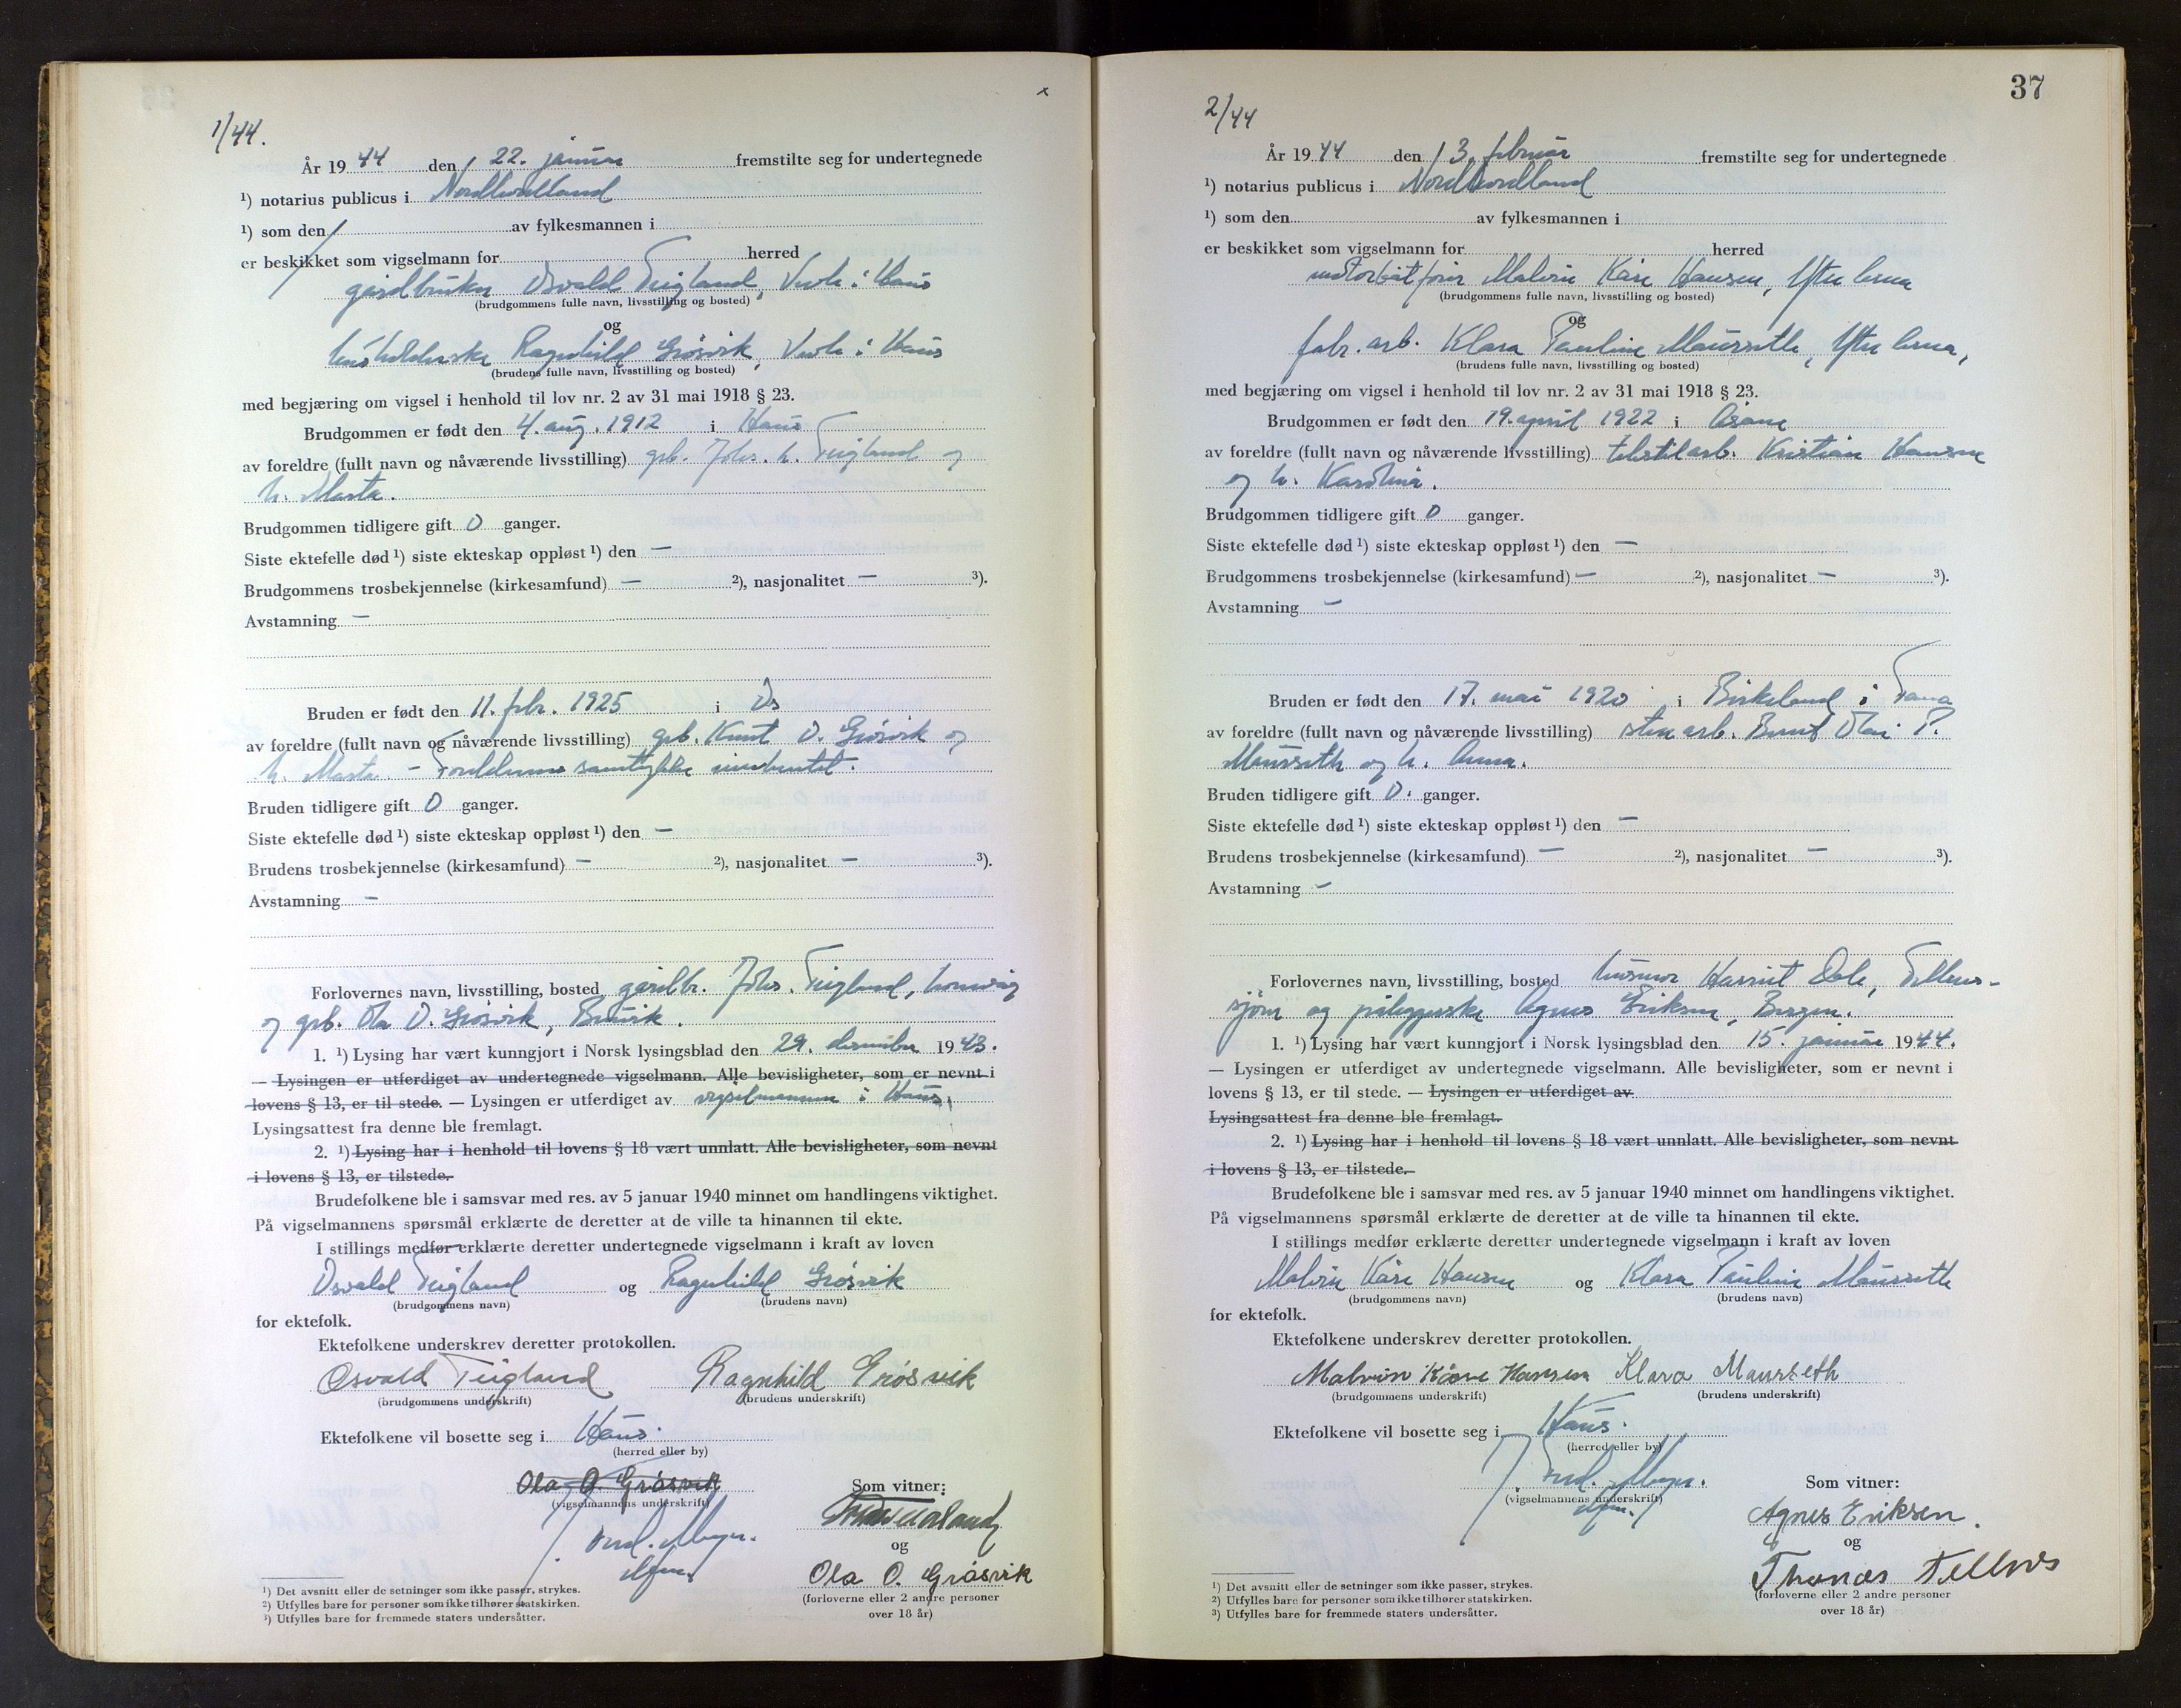 1/44.
År 1944 den 22. januar fremstilte seg for undertegnede
¹) notarius publicus i Nordhordland
¹) som den av fylkesmannen i
er beskikket som vigselmann for herred
gårdbruker Osvald Teigland, i Haus
(brudgommens fulle navn, livsstilling og bosted)
og
Ragnhild Gròsvik, i Haus
(brudens fulle navn, livsstilling og bosted)
med begjæring om vigsel i henhold til lov nr. 2 av 31 mai 1918 § 23.
Brudgommen er født den 4. aug. 1912 i Haus
av foreldre (fullt navn og nåværende livsstilling) grb. Johs. Teigland og
h. Marta.
Brudgommen tidligere gift 0 ganger.
Siste ektefelle død ¹) siste ekteskap oppløst ¹) den —
Brudgommens trosbekjennelse (kirkesamfund) — ²), nasjonalitet — ³).
Avstamning —
Bruden er født den 11. febr. 1925 i Os
av foreldre (fullt navn og nåværende livsstilling) grb. Knut O. Gròsvik og
h. Marta. – Foreldrenes samtykke innhentet.
Bruden tidligere gift 0 ganger.
Siste ektefelle død ¹) siste ekteskap oppløst ¹) den —
Brudens trosbekjennelse (kirkesamfund) — ²), nasjonalitet — ³).
Avstamning —
Forlovernes navn, livsstilling, bosted gårdbr. Johs. Teigland,
og grb. Ola O. Gròsvik,
1. ¹) Lysing har vært kunngjort i Norsk lysingsblad den 29. desember 1943.
— Lysingen er utferdiget av undertegnede vigselmann. Alle bevisligheter, som er nevnt i
lovens § 13, er til stede. — Lysingen er utferdiget av vigselmannen i Haus,
Lysingsattest fra denne ble fremlagt.
2. ¹) Lysing har i henhold til lovens § 18 vært unnlatt. Alle bevisligheter, som nevnt
i lovens § 13, er tilstede.
Brudefolkene ble i samsvar med res. av 5 januar 1940 minnet om handlingens viktighet.
På vigselmannens spørsmål erklærte de deretter at de ville ta hinannen til ekte.
I stillings medfør erklærte deretter undertegnede vigselmann i kraft av loven
Osvald Teigland og Ragnhild Gròsvik
(brudgommens navn) (brudens navn)
for ektefolk.
Ektefolkene underskrev deretter protokollen.
Osvald Teigland Ragnhild Gròsvik
(brudgommens underskrift) (brudens underskrift)
Ektefolkene vil bosette seg i Haus.
(herred eller by)
Ola O. Gròsvik Som vitner:
(vigselmannens underskrift)
og
Ola O. Gròsvik
(forloverne eller 2 andre personer
over 18 år)
¹) Det avsnitt eller de setninger som ikke passer, strykes.
²) Utfylles bare for personer som ikke tilhører statskirken.
³) Utfylles bare for fremmede staters undersåtter.
37
2/44
År 1944 den 3. februar fremstilte seg for undertegnede
¹) notarius publicus i Nordhordland
¹) som den av fylkesmannen i
er beskikket som vigselmann for herred
motorbåtfører Malvin Kåre Hansen, Ytre Arna
(brudgommens fulle navn, livsstilling og bosted)
og
fabr. arb. Klara Pauline Maurseth, Ytre Arna,
(brudens fulle navn, livsstilling og bosted)
med begjæring om vigsel i henhold til lov nr. 2 av 31 mai 1918 § 23.
Brudgommen er født den 19. april 1922 i Åsane
av foreldre (fullt navn og nåværende livsstilling) tekstilarb. Kristian Hansen
og h. Karolina.
Brudgommen tidligere gift 0 ganger.
Siste ektefelle død ¹) siste ekteskap oppløst ¹) den —
Brudgommens trosbekjennelse (kirkesamfund) — ²), nasjonalitet — ³).
Avstamning —
Bruden er født den 17. mai 1920 i Birkeland i Fana
av foreldre (fullt navn og nåværende livsstilling) stenarb. Bernt Olai P.
Maurseth og h. Anna.
Bruden tidligere gift 0. ganger.
Siste ektefelle død ¹) siste ekteskap oppløst ¹) den —
Brudens trosbekjennelse (kirkesamfund) — ²), nasjonalitet — ³).
Avstamning —
Forlovernes navn, livsstilling, bosted husmor Harriet Dale,
og påleggerske Agnes Eriksen, Bergen.
1. ¹) Lysing har vært kunngjort i Norsk lysingsblad den 15. januar 1944.
— Lysingen er utferdiget av undertegnede vigselmann. Alle bevisligheter, som er nevnt i
lovens § 13, er til stede. — Lysingen er utferdiget av
Lysingsattest fra denne ble fremlagt.
2. ¹) Lysing har i henhold til lovens § 18 vært unnlatt. Alle bevisligheter, som nevnt
i lovens § 13, er tilstede.
Brudefolkene ble i samsvar med res. av 5 januar 1940 minnet om handlingens viktighet.
På vigselmannens spørsmål erklærte de deretter at de ville ta hinannen til ekte.
I stillings medfør erklærte deretter undertegnede vigselmann i kraft av loven
Malvin Kåre Hansen og Klara Pauline Maurseth
(brudgommens navn) (brudens navn)
for ektefolk.
Ektefolkene underskrev deretter protokollen.
Malvin Kåre Hansen Klara Maurseth
(brudgommens underskrift) (brudens underskrift)
Ektefolkene vil bosette seg i Haus.
(herred eller by)
Som vitner:
(vigselmannens underskrift)
Agnes Eriksen.
og
Thomas Tellnes
(forloverne eller 2 andre personer
over 18 år)
¹) Det avsnitt eller de setninger som ikke passer, strykes.
²) Utfylles bare for personer som ikke tilhører statskirken.
³) Utfylles bare for fremmede staters undersåtter.